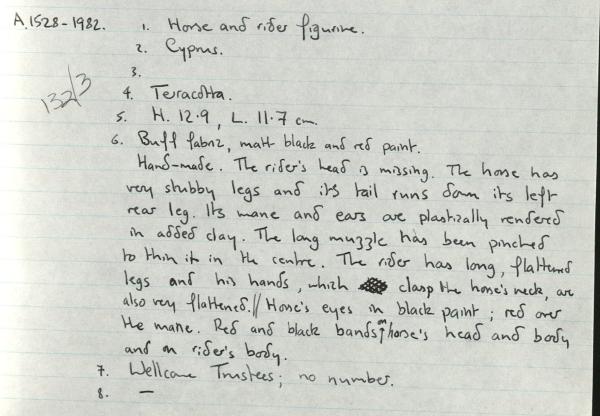 A.1528-1982. 1. Horse and rider figurine.
2. Cyprus.
3.
132/3
4. Terracotta.
5. H. 12.9, L. 11.7 cm.
6. Buff fabric, matt black and red paint.
Hand-made. The rider's head is missing. The horse has
very stubby legs and its tail runs down its left
rear leg. Its mane and ears are plastically rendered
in added clay. The long muzzle has been pinched
to thin it in the centre. The rider has long, flattened
legs and his hands, which clasp the horse's neck, are
also very flattened.// Horse's eyes in black paint; red over
the mane. Red and black bands on horse's head and body
and on rider's body.
7. Wellcome Trustees; no number.
8. —